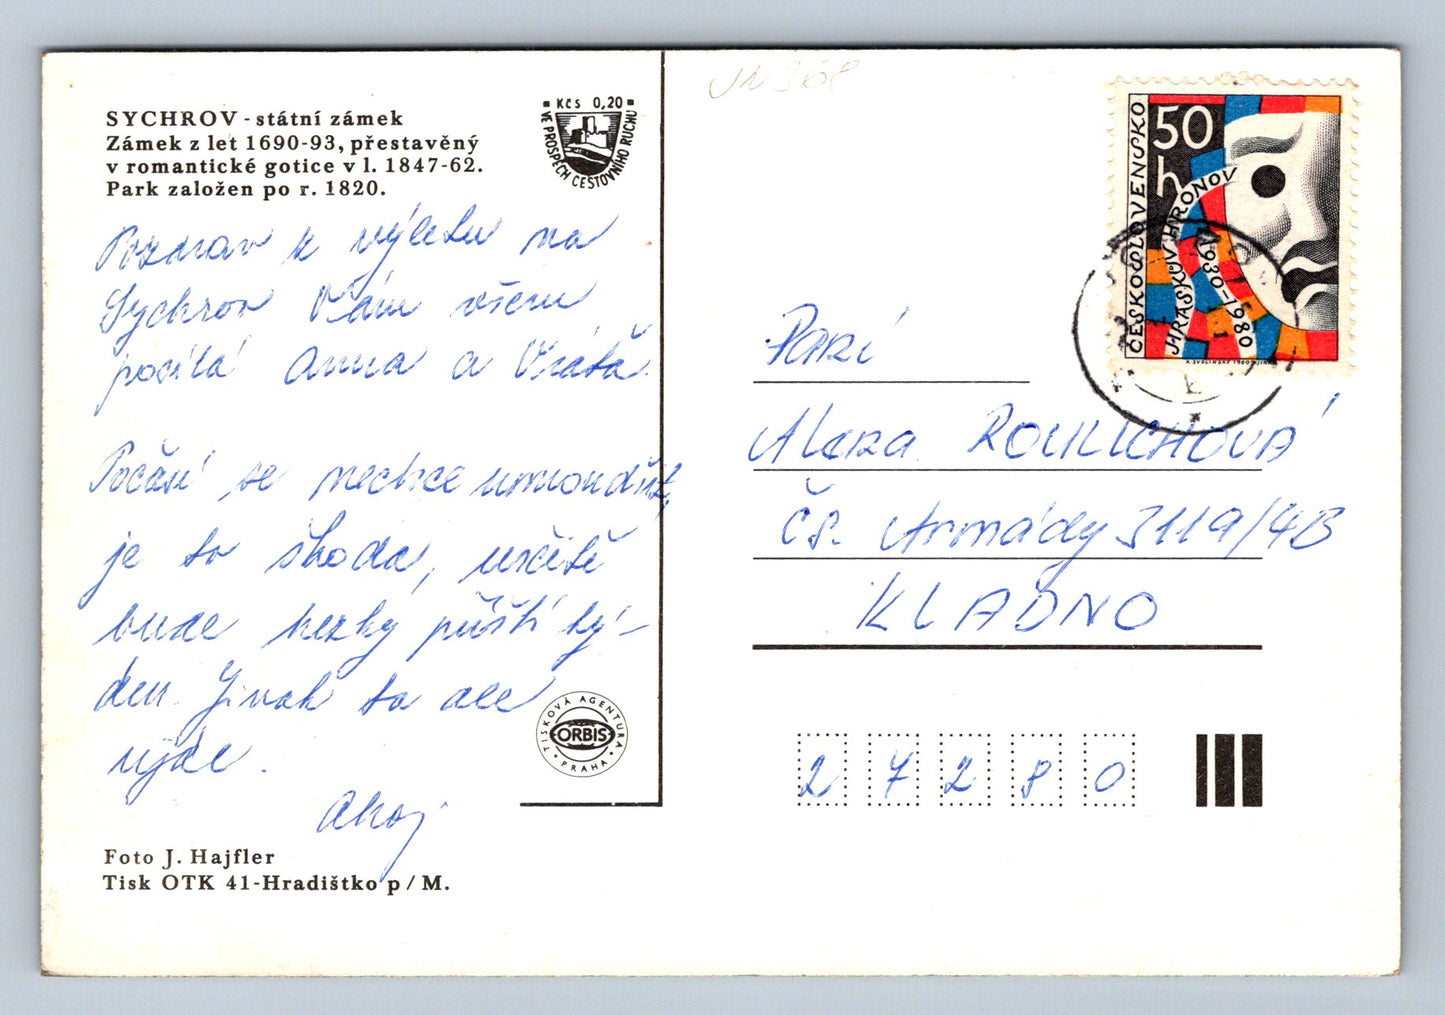 SYCHROV - státní zámek
Zámek z let 1690-93, přestavěný
v romantické gotice v l. 1847-62.
Park založen po r. 1820.
Kčs 0,20
VE PROSPĚCH CESTOVNÍHO RUCHU
Pozdrav z výletu na
Sychrov Vám všem
posílá Anna a Vráťa.
Počasí se nechce umoudřit,
je to škoda, určitě
bude hezky příští tý-
den. Jinak to ale
ujde.
Ahoj
TISKOVÁ AGENTURA
ORBIS
PRAHA
Foto J. Hajfler
Tisk OTK 41-Hradištko p/M.
368
ČESKOSLOVENSKO
50
h
JIRÁSKŮV HRONOV
1930-1980
K. SVOLINSKÝ 1980
Paní
ROHLICHOVÁ
Čs. Armády 3119/4B
KLADNO
27280